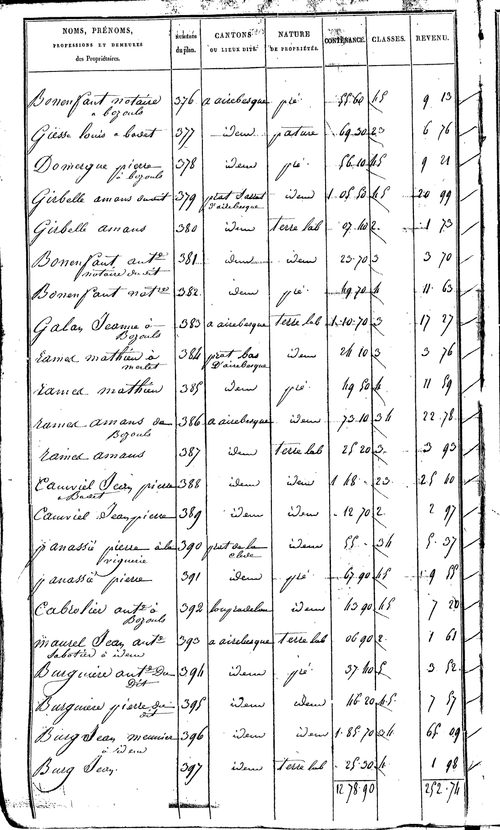 NOMS, PRÉNOMS, PROFESSIONS ET DEMEURES des Propriétaires. NUMÉROS du plan. CANTONS OU LIEUX DITS. NATURE DE PROPRIÉTÉS. CONTENANCE. CLASSES. REVENU.
Bonenfant notaire a bozouls 376 a airebesque pré 55 60 45 9 13
Giesse louis a baset 377 idem pature 69 30 23 6 76
Domergue pierre à bozouls 378 idem pré 56 10 45 9 21
Girbelle amans dudit 379 prat d'airebesque idem 1 05 50 45 20 99
Girbelle amans 380 idem terre lab 07 40 2 1 73
Bonenfant ant.e notaire du dit 381 idem idem 23 70 3 3 70
Bonenfant not.re 382 idem pré 49 70 4 11 63
Galan Jeanne à Bozouls 383 a airebesque terre lab 1 10 70 3 17 27
ramed mathieu à 384 prat bas D'airebesque idem 24 10 3 3 76
ramed mathieu 385 idem pré 49 50 4 11 59
ramed amans de Bozouls 386 a airebesque idem 73 10 34 22 78
ramed amans 387 idem terre lab 25 20 3 3 93
Cauviel Jean pierre a Baset 388 idem idem 1 48 23 25 40
Cauviel Jean pierre 389 idem idem 12 70 2 2 97
panassié pierre à la viguerie 390 prat de la idem 55 34 5 37
panassié pierre 391 idem pré 67 90 45 9 55
Cabrolier ant.e à Bozouls 392 idem 43 90 45 7 20
maurel Jean ant.e Sabotier à idem 393 a airebesque terre lab 06 90 2 1 61
Burguiere ant.e du Dit 394 idem pré 37 40 5 3 52
Burguiere pierre du dit 395 idem idem 46 20 45 7 57
Burg Jean meunier à idem 396 idem idem 1 85 70 34 65 09
Burg Jean 397 idem terre lab 25 30 4 1 98
12 78 90 252 74